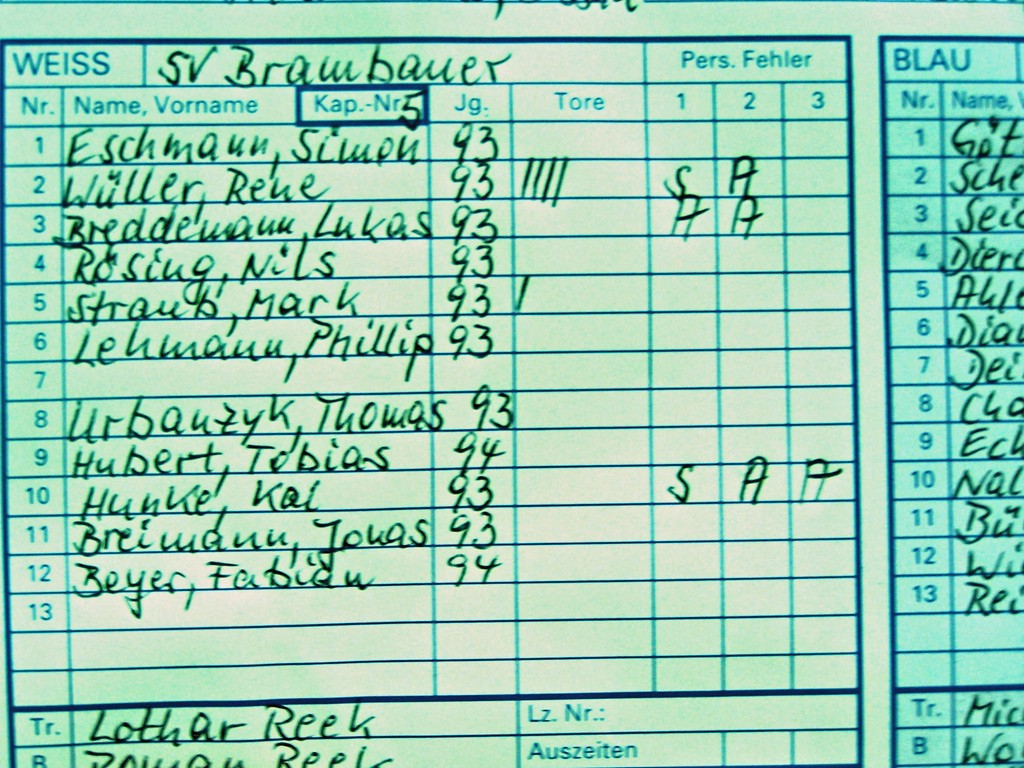 WEISS SV Brambauer Pers. Fehler BLAU
Nr. Name, Vorname Kap.-Nr. 5 Jg. Tore 1 2 3 Nr. Name,
1 Eschmann, Simon 93 1 Göt
2 Wüller, Rene 93 IIIII S A 2 Sche
3 Breddemann, Lukas 93 A A 3 Seid
4 Rösing, Nils 93 4 Dier
5 Straub, Mark 93 I 5 Ahl
6 Lehmann, Phillip 93 6 Dia
7 7 Dei
8 Urbanzyk, Thomas 93 8 Cha
9 Hubert, Tobias 94 9 Ech
10 Hunke, Kai 93 S A A 10 Nal
11 Breimann, Jonas 93 11 Bü
12 Beyer, Fabian 94 12 Wi
13 13 Rei
Tr. Lothar Reek Lz. Nr.: Tr. Mic
B Roman Reek Auszeiten B Wo